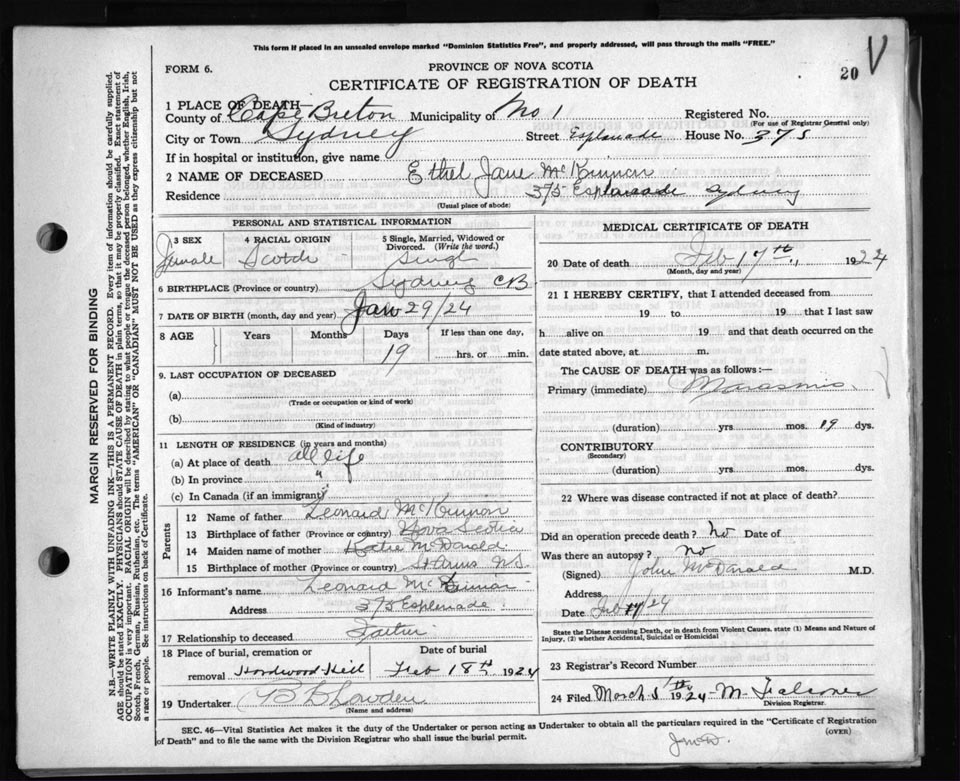 This form if placed in an unsealed envelope marked "Dominion Statistics Free", and properly addressed, will pass through the mails "FREE."
FORM 6.
PROVINCE OF NOVA SCOTIA
20 V
CERTIFICATE OF REGISTRATION OF DEATH
1 PLACE OF DEATH—
County of Cape Breton Municipality of No 1 Registered No.
(For use of Registrar General only)
City or Town Sydney Street Esplanade House No. 375
If in hospital or institution, give name
2 NAME OF DECEASED Ethel Jane McKinnon
Residence 375 Esplanade Sydney
(Usual place of abode)
PERSONAL AND STATISTICAL INFORMATION
3 SEX 4 RACIAL ORIGIN 5 Single, Married, Widowed or Divorced. (Write the word.)
Female Scotch Single
6 BIRTHPLACE (Province or country) Sydney CB
7 DATE OF BIRTH (month, day and year) Jan 29/24
8 AGE Years Months Days If less than one day,
19 hrs. or min.
9. LAST OCCUPATION OF DECEASED
(a)
(Trade or occupation or kind of work)
(b)
(Kind of industry)
11 LENGTH OF RESIDENCE (in years and months)
(a) At place of death all life
(b) In province "
(c) In Canada (if an immigrant)
Parents
12 Name of father Leonard McKinnon
13 Birthplace of father (Province or country) Nova Scotia
14 Maiden name of mother Katie McDonald
15 Birthplace of mother (Province or country) St Anns N.S.
16 Informant's name Leonard McKinnon
Address 375 Esplanade
17 Relationship to deceased Father
18 Place of burial, cremation or removal Hardwood Hill
Date of burial Feb 18th 1924
19 Undertaker
(Name and address)
MEDICAL CERTIFICATE OF DEATH
20 Date of death Feb 17th, 1924
(Month, day and year)
21 I HEREBY CERTIFY, that I attended deceased from
19 to 19 that I last saw
h alive on 19 and that death occurred on the
date stated above, at m.
The CAUSE OF DEATH was as follows:—
Primary (immediate) Marasmus
(duration) yrs mos. 19 dys.
CONTRIBUTORY
(Secondary)
(duration) yrs. mos. dys.
22 Where was disease contracted if not at place of death?
Did an operation precede death? No Date of
Was there an autopsy? no
(Signed) John McDonald M.D.
Address
Date Feb 24
State the Disease causing Death, or in death from Violent Causes. state (1) Means and Nature of Injury, (2) whether Accidental, Suicidal or Homicidal
23 Registrar's Record Number
24 Filed March 5th 1924 M. Falconer
Division Registrar.
SEC. 46—Vital Statistics Act makes it the duty of the Undertaker or person acting as Undertaker to obtain all the particulars required in the "Certificate of Registration
of Death" and to file the same with the Division Registrar who shall issue the burial permit.
(OVER)
MARGIN RESERVED FOR BINDING
N.B.—WRITE PLAINLY WITH UNFADING INK—THIS IS A PERMANENT RECORD. Every item of information should be carefully supplied.
AGE should be stated EXACTLY. PHYSICIANS should STATE CAUSE OF DEATH in plain terms, so that it may be properly classified. Exact statement of
OCCUPATION is very important. RACIAL ORIGIN will be described by stating to what people or tongue the deceased person belonged, whether English, Irish,
Scotch, French, German, Russian, Ruthenian, etc. The terms "AMERICAN" OR "CANADIAN" MUST NOT BE USED as they express citizenship but not
a race or people. See instructions on back of Certificate.